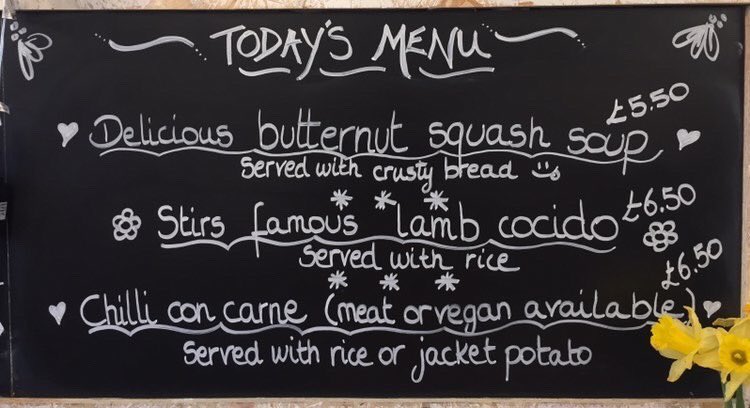 TODAY'S MENU
Delicious butternut squash soup £5.50
Served with crusty bread
Stirs famous lamb cocido £6.50
Served with rice
Chilli con carne (meat or vegan available) £6.50
Served with rice or jacket potato